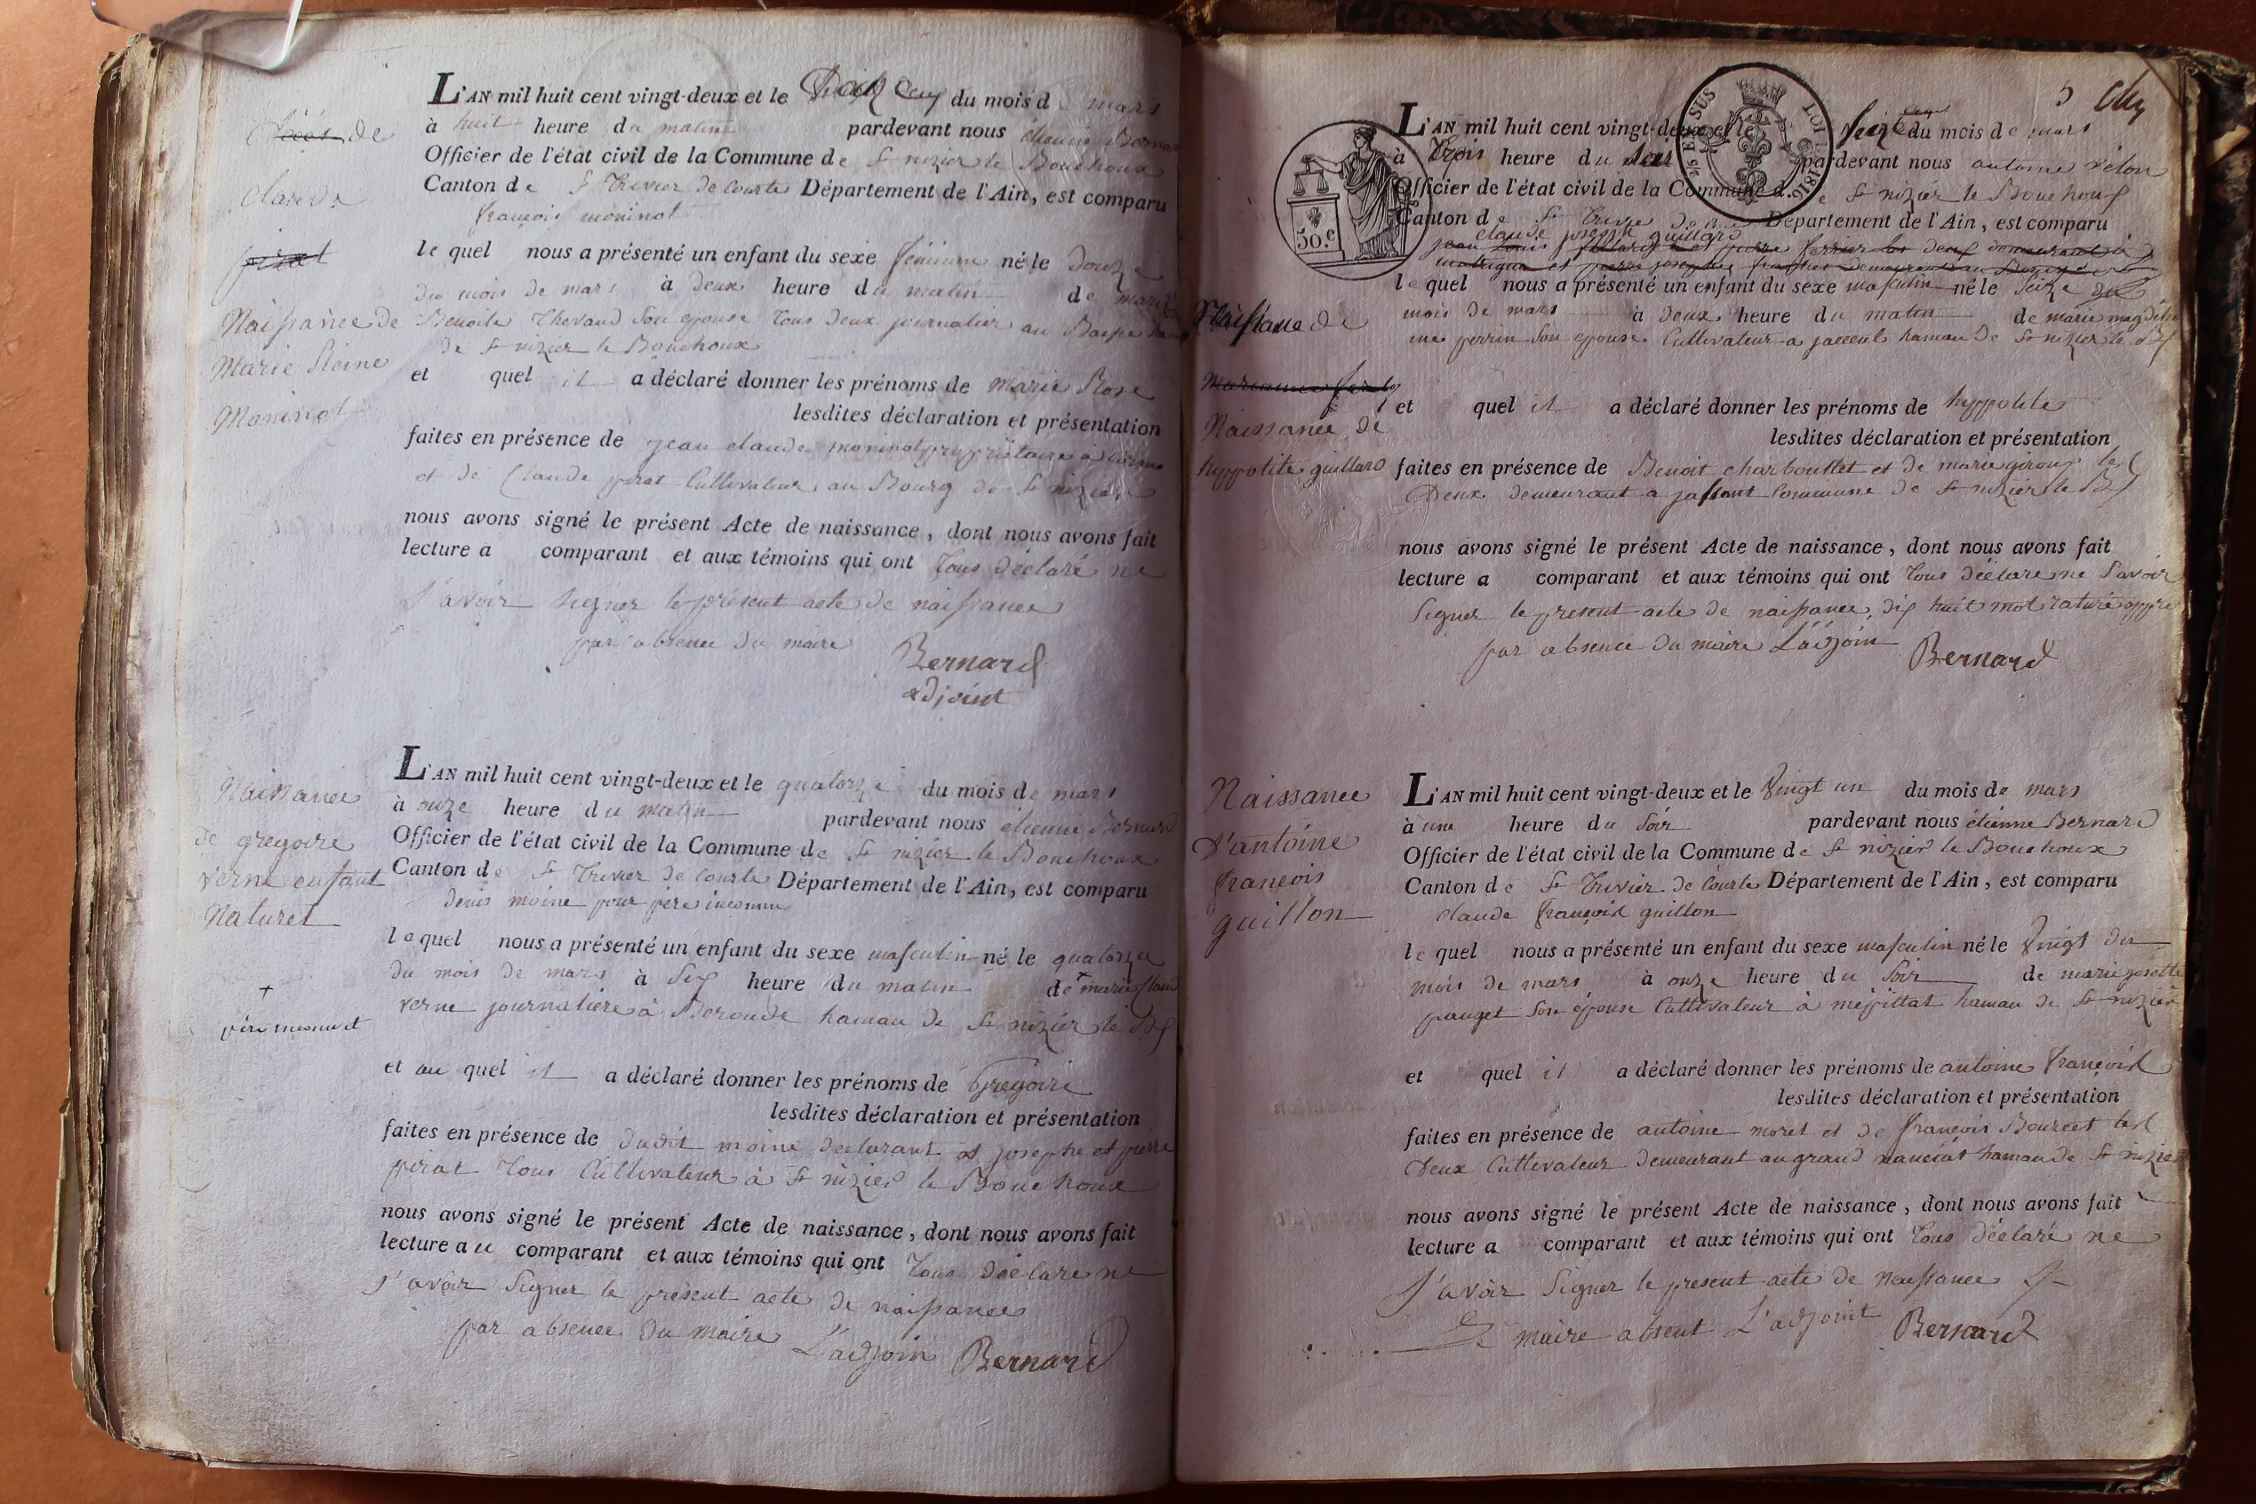 L'AN mil huit cent vingt-deux et le du mois d mars
à huit heure du matin pardevant nous étienne Bernard
Officier de l'état civil de la Commune de St nizier le Bouchoux
Canton de St Trivier de Courtes Département de l'Ain, est comparu
françois moninot
le quel nous a présenté un enfant du sexe féminin né le douze
du mois de mars à deux heure du matin de marie
Benoite Thevaud son epouse tous deux journalier au
de St nizier le Bouchoux
et quel il a déclaré donner les prénoms de Marie Rose
lesdites déclaration et présentation
faites en présence de jean claude moninot propriétaire à
et de Claude pirat Cultivateur au Bourg de St nizier
nous avons signé le présent Acte de naissance, dont nous avons fait
lecture a comparant et aux témoins qui ont tous déclaré ne
s'avoir signer le présent acte de naissance
par absence du maire Bernard
adjoint
décés de
claude
pirat
Naissance de
Marie Reine
Moninot
L'AN mil huit cent vingt-deux et le quatorze du mois de mars
à onze heure du matin pardevant nous étienne Bernard
Officier de l'état civil de la Commune de St nizier le Bouchoux
Canton de St Trivier de Courtes Département de l'Ain, est comparu
denis moine pour père inconnu
le quel nous a présenté un enfant du sexe masculin né le quatorze
du mois de mars à six heure du matin de marie claud
verne journalière à Beroude hamau de St nizier le Bx
et au quel il a déclaré donner les prénoms de Gregoire
lesdites déclaration et présentation
faites en présence de dudit moine declarant et josephe et pierre
pirat tous Cultivateur à St nizier le Bouchoux
nous avons signé le présent Acte de naissance, dont nous avons fait
lecture au comparant et aux témoins qui ont tous déclare ne
s'avoir signer le présent acte de naissance
par absence du maire L'adjoin Bernard
Naissance
de gregoire
verne enfant
Naturel
+
père inconnu
5
L'AN mil huit cent vingt-deux et le seize du mois de mars
à trois heure du soir pardevant nous antoine vélon
Officier de l'état civil de la Commune de St nizier le Bouchoux
Canton de St Trivier de Département de l'Ain, est comparu
claude joseph guillard
le quel nous a présenté un enfant du sexe masculin né le seize du
mois de mars à deux heure du matin de marie magdelei
ne perrin son epouse Cultivateur a jassent hamau de St nizier le Bx
et quel il a déclaré donner les prénoms de hyppolite
lesdites déclaration et présentation
faites en présence de Benoit charbouillet et de marie giroux les
Deux demeurant a jassent Commune de St nizier le Bx
nous avons signé le présent Acte de naissance, dont nous avons fait
lecture a comparant et aux témoins qui ont tous déclare ne s'avoir
signer le present acte de naissance, dix huit mot raturé
par absence du maire L'adjoin Bernard
50.c
LOI 1816
Naissance de
Naissance de
hyppolite guillard
L'AN mil huit cent vingt-deux et le vingt un du mois de mars
à une heure du soir pardevant nous étienne Bernard
Officier de l'état civil de la Commune de St nizier le Bouchoux
Canton de St Trivier de Courte Département de l'Ain, est comparu
claude françois guillon
le quel nous a présenté un enfant du sexe masculin né le vingt du
mois de mars à onze heure du soir de marie josette
pauget son épouse Cultivateur à mépittat hamau de St nizier
et quel il a déclaré donner les prénoms de antoine françois
lesdites déclaration et présentation
faites en présence de antoine morel et de françois Bourcet les
deux Cultivateur demeurant au grand hamau de St nizier
nous avons signé le présent Acte de naissance, dont nous avons fait
lecture a comparant et aux témoins qui ont tous déclaré ne
s'avoir signer le present acte de naissance
Le maire absent L'adjoint Bernard
Naissance
d'antoine
françois
guillon